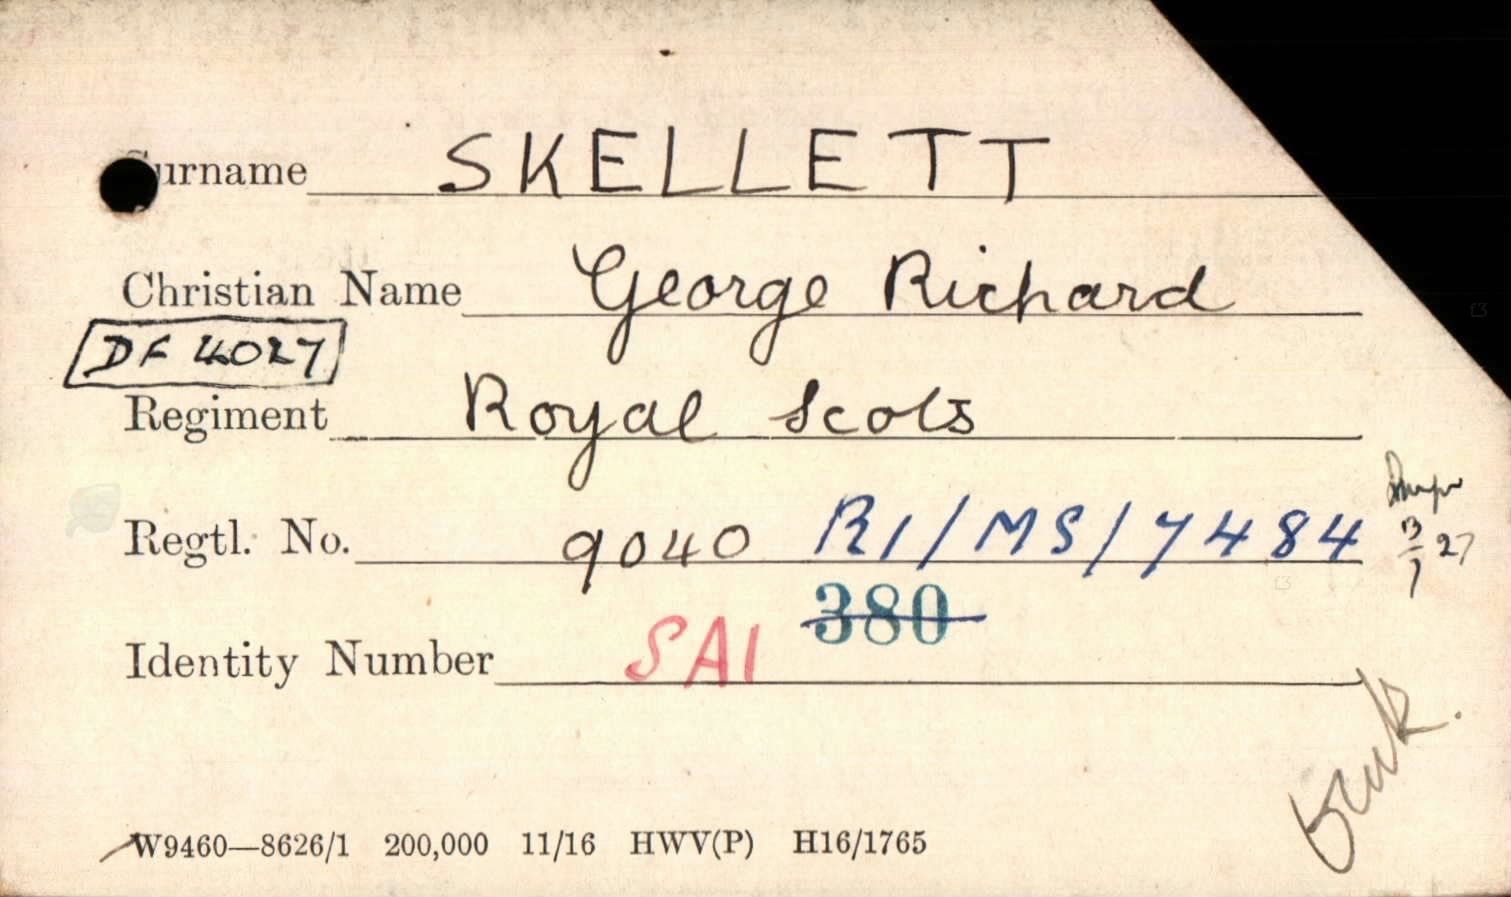 Surname SKELLETT
Christian Name George Richard
DF 4027
Regiment Royal Scots
Regtl. No. 9040 RI/MS/7484
3/1 27
380
Identity Number SAI
W9460—8626/1 200,000 11/16 HWV(P) H16/1765